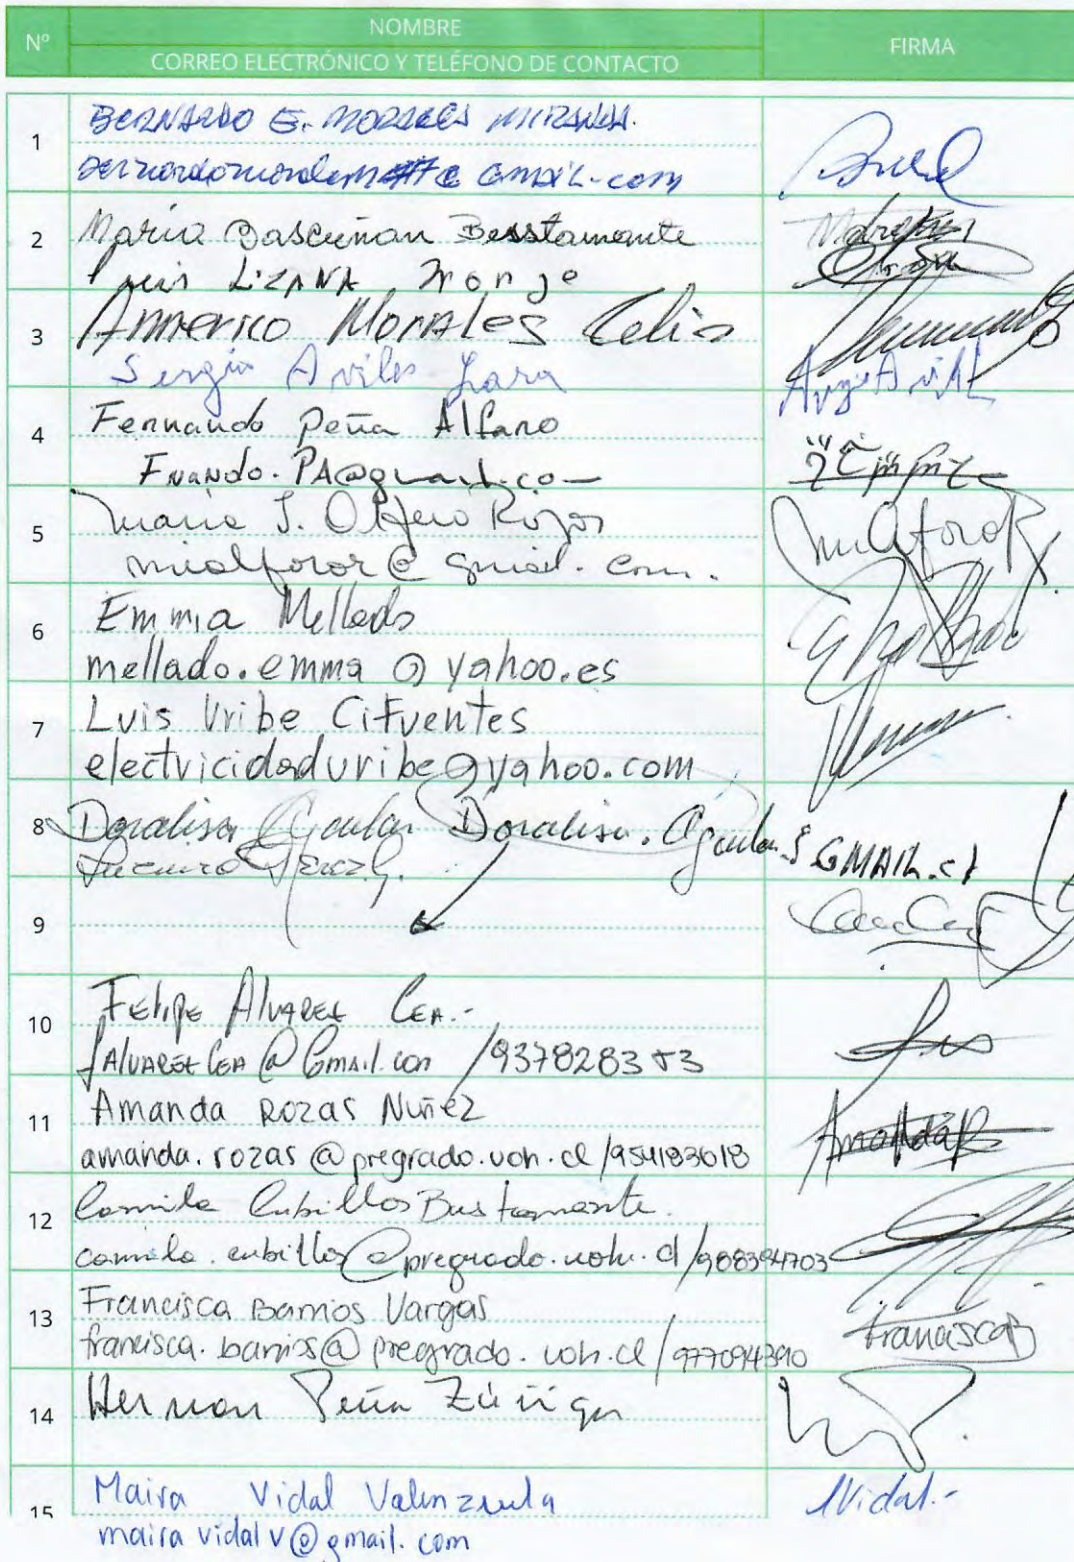 Nº
NOMBRE
CORREO ELECTRÓNICO Y TELÉFONO DE CONTACTO
FIRMA
1
BERNARDO E. MORALES MIRANDA.
@ GMAIL.com
2
Maria Bascuñan Busstamante
Luis LIZANA Monje
3
Ammerico Morales Celis
Sergio Aviles Lara
4
Fernando Peña Alfaro
FNANdo.PA@gmail.com
5
Maria J. Alfero Rojas
@ gmail.com.
6
Emmia Mellado
mellado.emma @ yahoo.es
7
Luis Uribe Cifuentes
electricidaduribe@yahoo.com
8
Doralisa Aguilar Doralisa.Aguilar.S GMAIL.cl
9
10
FELIPE ALVAREZ CEA.-
fALVAREZCEA @ Gmail.con /937828353
11
Amanda ROZAS Nuñez
amanda.rozas @pregrado.uoh.cl/954183618
AmandaR
12
Camila Cubillos Bustamante.
camila.cubillos@pregrado.uoh.cl/988394703
13
Francisca Barrios Vargas
francisca.barrios@pregrado.uoh.cl/977094390
FranciscaB
14
Hernan Peña Zúñiga
15
Maira Vidal Valenzuela
MVidal.-
maira vidal v@gmail.com